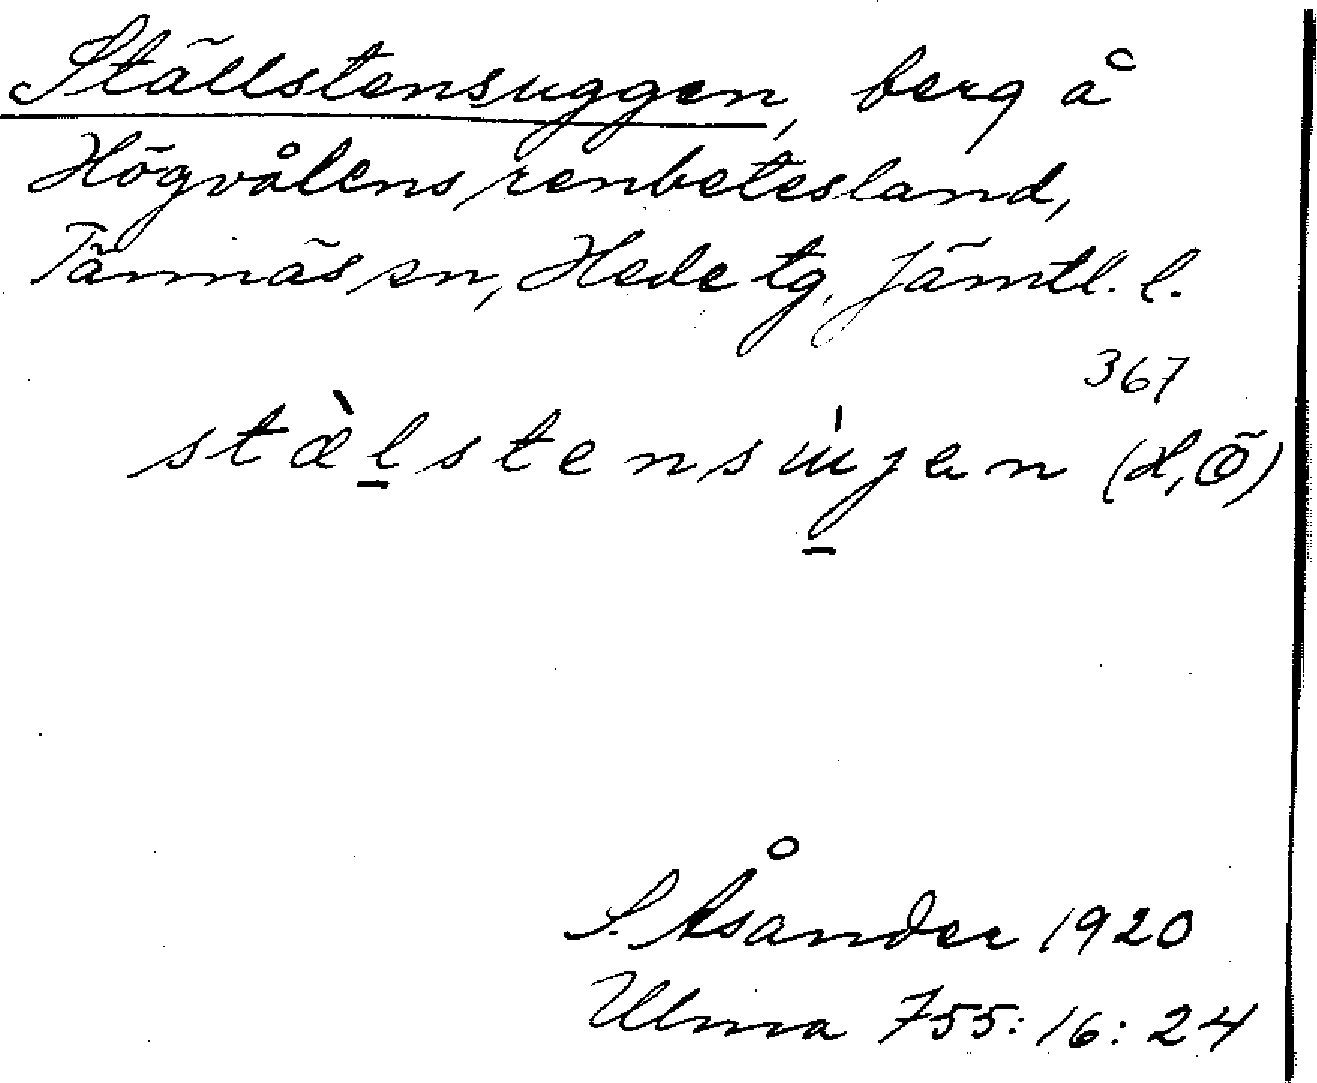 Ställstensuggen, berg å
Högvålens renbetesland,
Tännäs sn, Hede tg, Jämtl. l.
367
S. Åsander 1920
Ulma 755:16:24